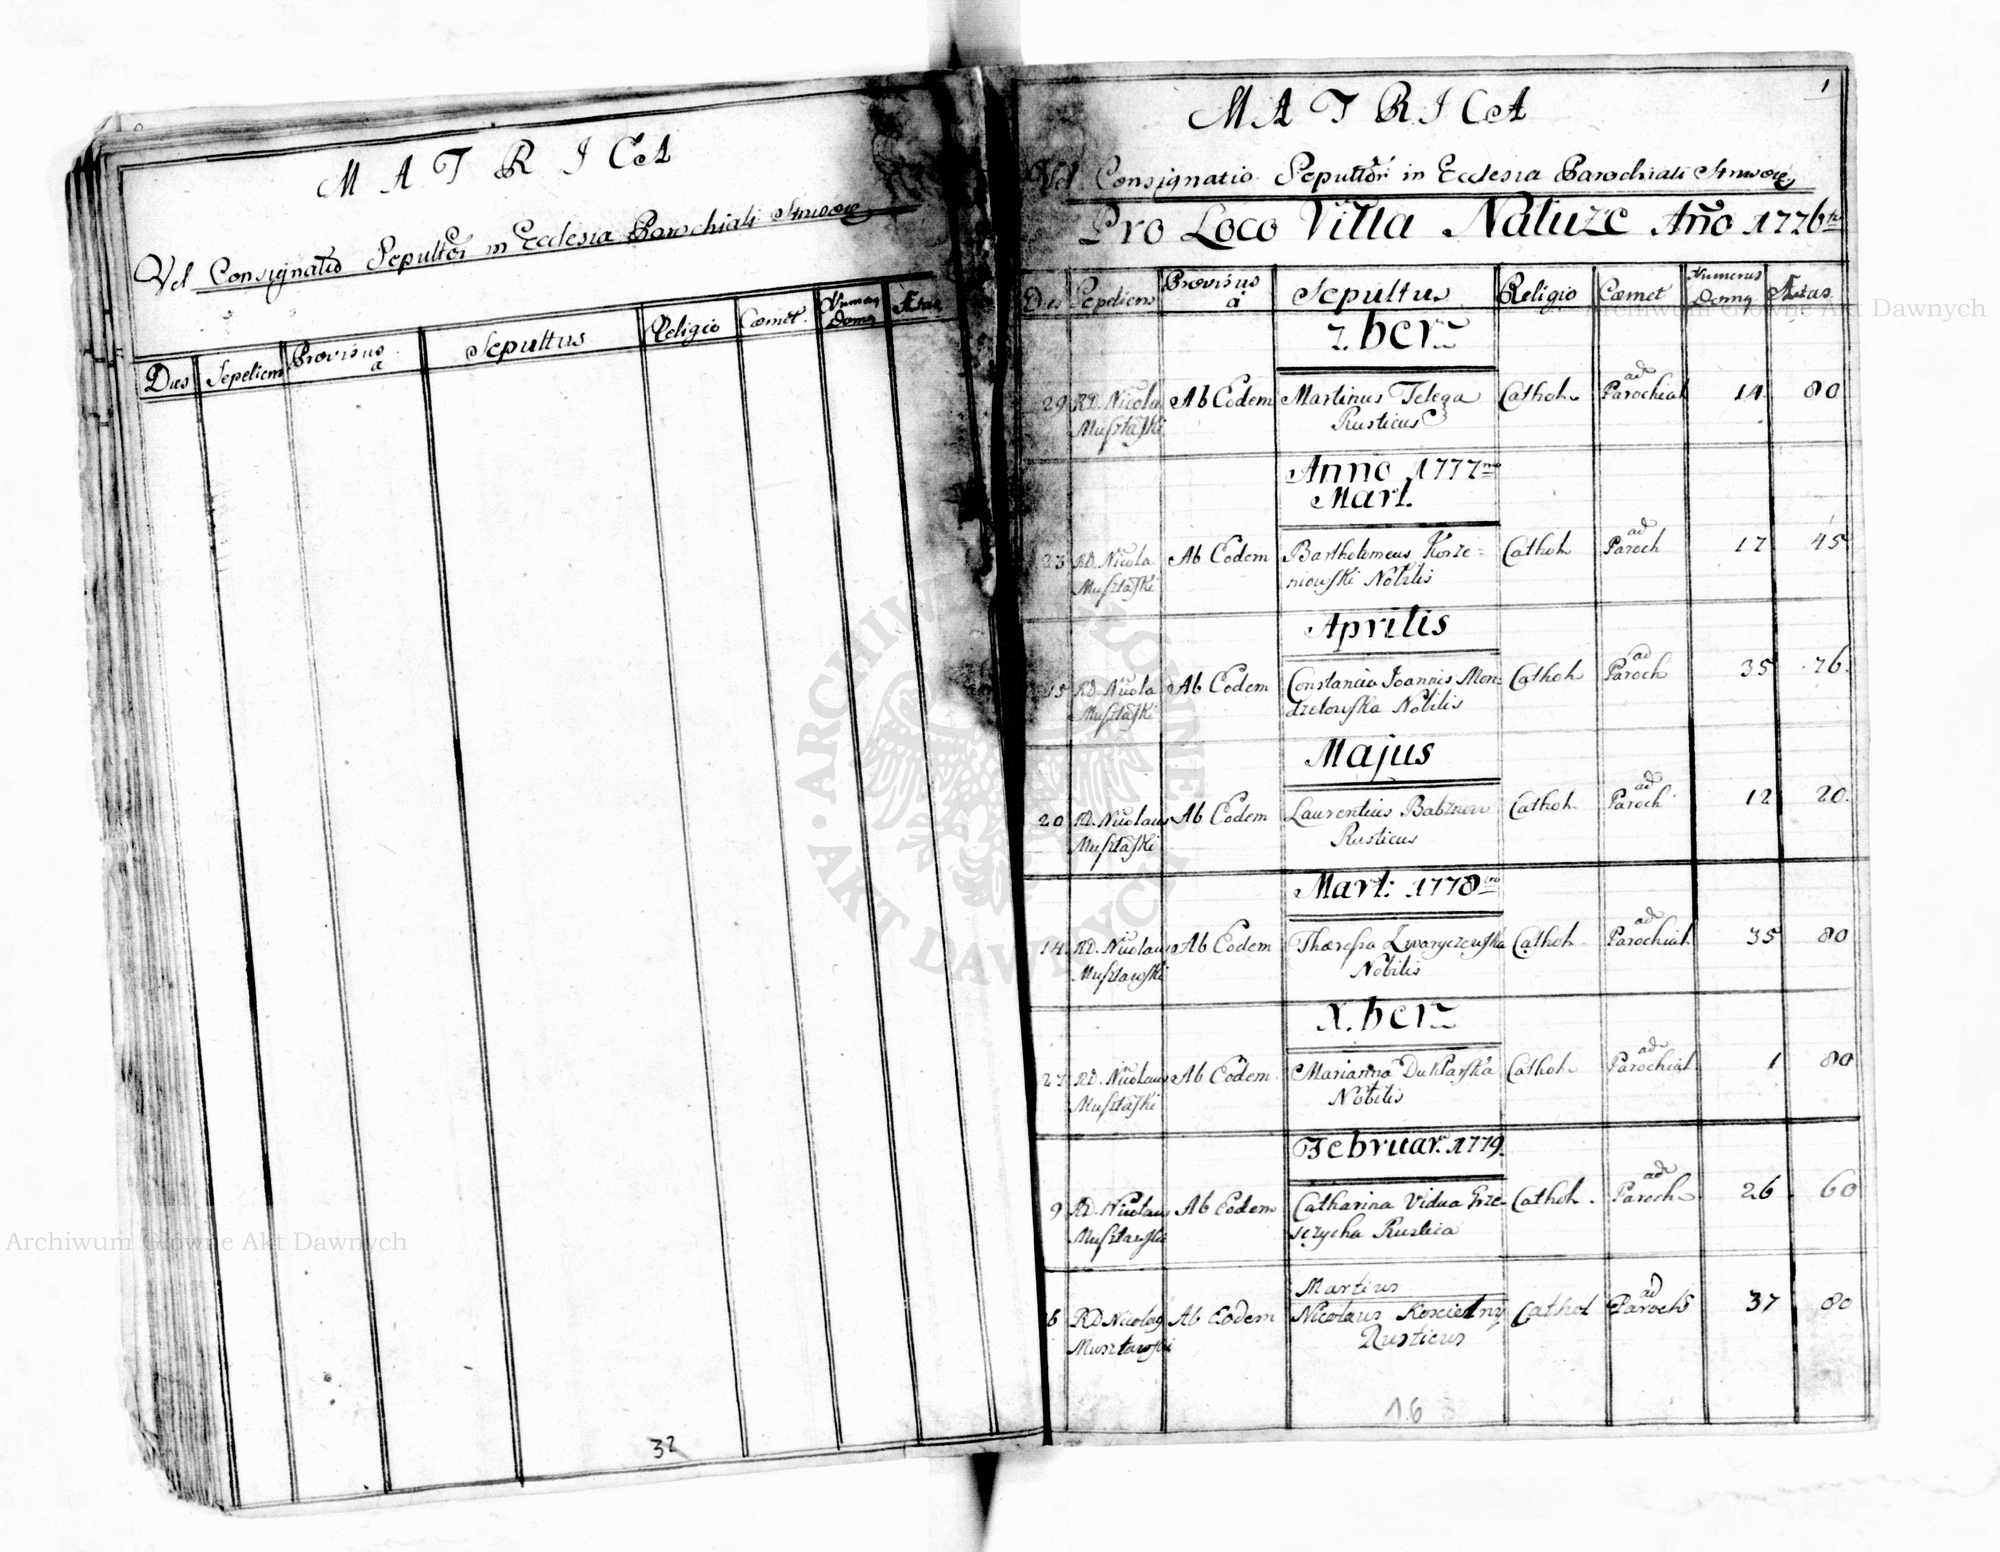 MATRICA
Vel Consignatio Sepultor in Ecclesia Parochiali
Dies Sepeliens Provisus a Sepultus Religio Cœmet. Numerg Domg Ætas
32
1
MATRICA
Vel Consignatio Sepultor in Ecclesia Parochiali
Pro Loco Villa Natuze Año 1776to
Dies Sepeliens Provisus a Sepultus Religio Cœmet Numerus Domg Ætas
7.ber
29 RD. Nicola Ab Eodem Martinus Telega Cathol. ad Parochial 14 80
Musztaski Rusticus
Anno 1777mo
Mart.
23 RD. Nicola Ab Eodem Bartholomeus Korze= Cathol ad Paroch 17 45
Musztaski niowski Nobilis
Aprilis
15 RD. Nicola Ab Eodem Constancia Joannis Mon= Cathol ad Paroch 35 76.
Musztaski dzelowska Nobilis
Majus
20 RD. Nicolaus Ab Eodem Laurentius Cathol. ad Paroch 12 20.
Musztaski Rusticus
Mart: 1778vo
14. RD. Nicolaus Ab Eodem Theresia Zwaryczewska Cathol. ad Parochial. 35 80
Musztawski Nobilis
X.ber
27 RD. Nicolaus Ab Eodem Marianna Duklarska Cathol. ad Parochial. 1 80
Musztaski Nobilis
Februar. 1779.
9 RD. Nicolaus Ab Eodem Catharina Vidua Grze= Cathol. ad Paroch 26 60
Musztawski szycha Rustica
Martius
6 RD Nicolag Ab Eodem Nicolaus Koscielny Cathol ad Paroch 37 80
Musztawski Rusticus
16
Archiwum Główne Akt Dawnych
Archiwum Główne Akt Dawnych
ARCHIWUM GŁÓWNE · AKT DAWNYCH ·